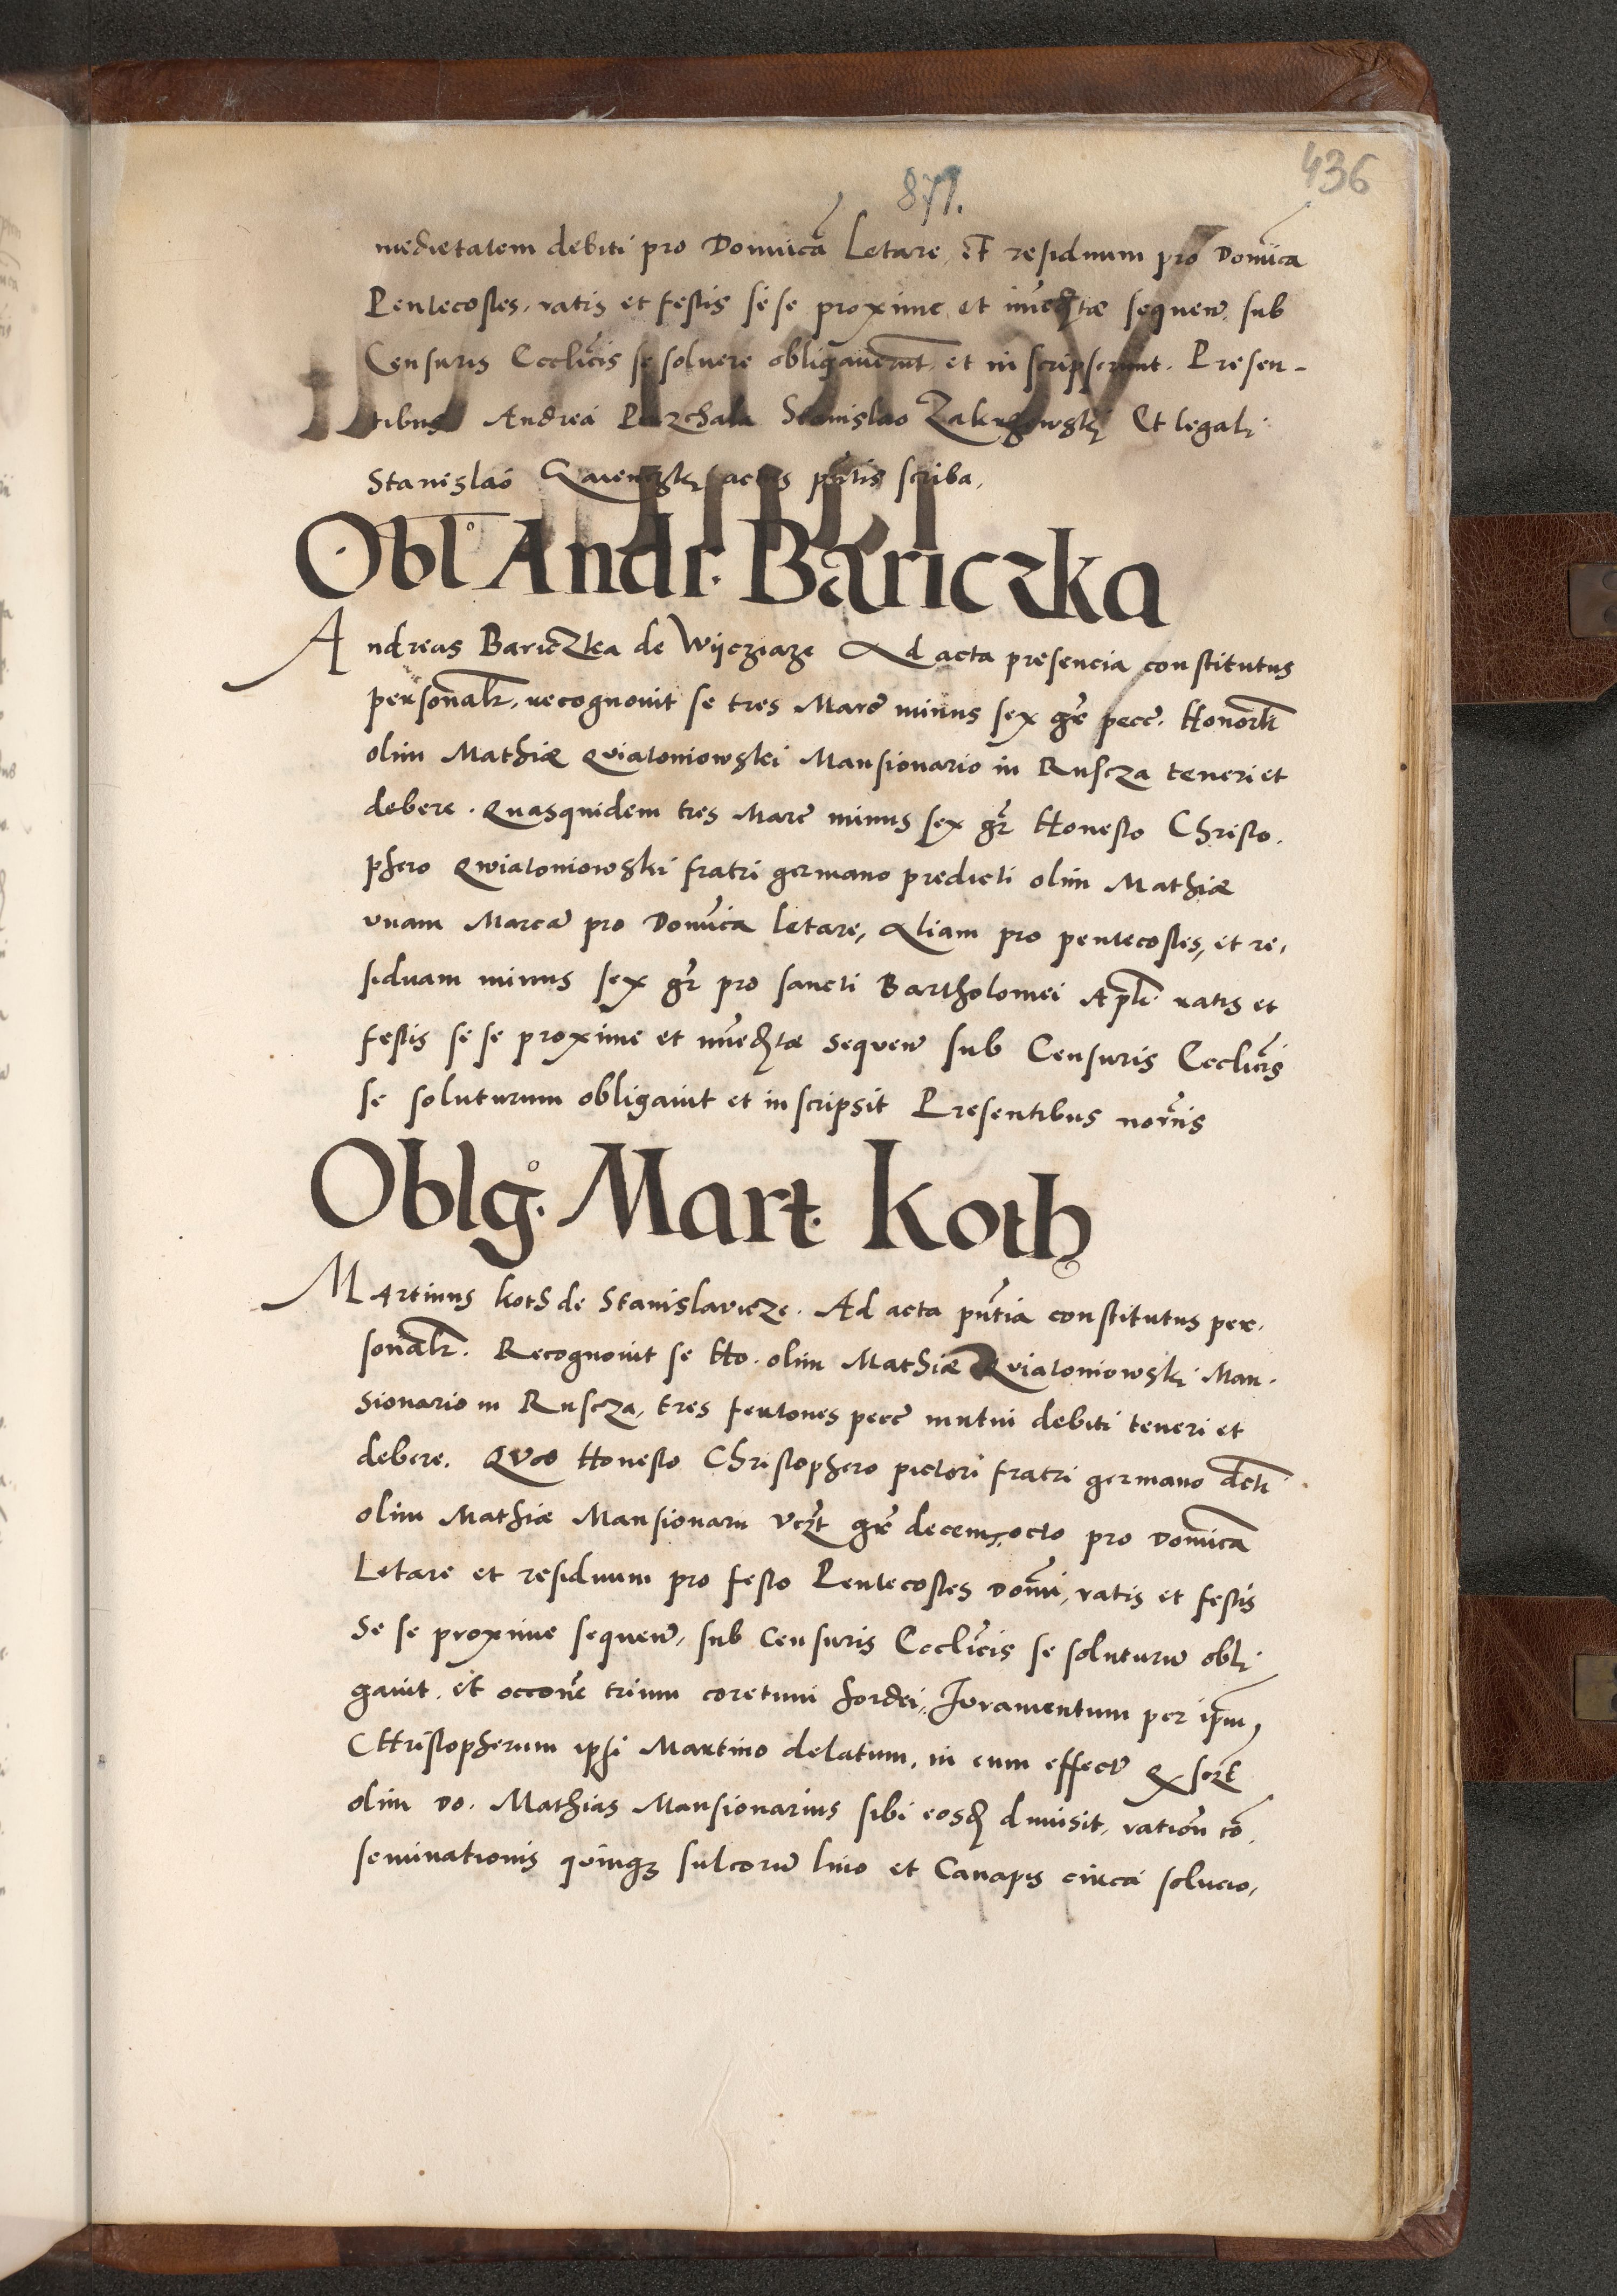 436
871.
medietatem debiti pro Domīcā Letare, et residuum pro Domīca
Pentecostes, ratis et festis sese proxime et īmediatæ sequeñ sub
Censuris Ecclīcis se soluere obligauerunt et inscripserunt. Presen-
tibus Andrea Stanislao Et legali
Stanislao actus pñtis scriba.
Obl Andr. Bariczka
Andreas Bariczka de Wycziaze Ad acta presencia constitutus
personalr. recognouit se tres Marc minus sex gr pecc. Honorli
olim Mathiæ Qviatoniowskei Mansionario in Ruscza teneri et
debere. Quasquidem tres Marc minus sex gr Honesto Christo.
phero Qwiatoniowskei fratri germano predicti olim Mathiæ
vnam Marcā pro Domīca letare, Aliam pro pentecostes, et re,
siduam minus sex gr pro sancti Bartholomei Apli ratis et
festis se se proxime et īmediatæ sequeñ sub Censuris Ecclīcis
se soluturum obligauit et inscripsit Presentibus
Oblg. Mart. Koth
Martinus koth de Stanislawicze. Ad acta pñtia constitutus per.
sonalr. Recognouit se Ho. olim Mathiæ Qviatoniowski Man.
sionario in Ruscza, tres fertones pecc mutui debiti teneri et
debere. Quos Honesto Christophero pictori fratri germano dcti
olim Mathiæ Mansionarii vczt gr decem, octo pro Domīca
Letare et residuum pro festo Pentecostes Domī, ratis et festis
Se se proxime sequeñ, sub Censuris Ecclīcis se soluturū obli
gauit. et occōne trium coretum hordei, Juramentum per ipm,
CHristopherum ipsi Martino delatum, in eum effectū
olim Do. Mathias Mansionarius sibi eosd dimisit, ratiōn cō,
seminationis quinq sulcorū lino et Canapis circa solucio,